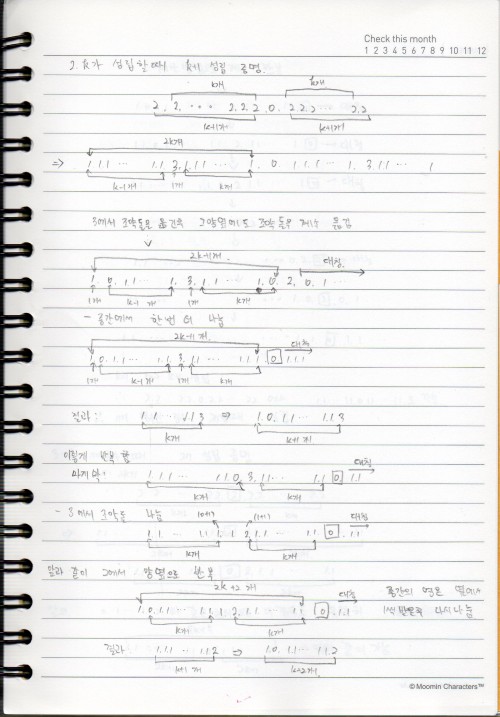 Check this month
1 2 3 4 5 6 7 8 9 10 11 12
2. k가 성립할때 k+1 성립 증명.
k개 k개
2. 2. ··· 2.2.2.0. 2.2.2 2.2
k+1개 k+1개
2k개
⇒ 1.1.1 ··· 1.1 3.1.1.1 ··· 1. 0. 1.1.1 ··· 1. 3.1.1 ··· 1
k-1개 1개 k개
3에서 조약돌을 옮긴후 그 옆에도 조약돌을 계속 옮김
2k-1개. 대칭
1. 0. 1.1 ··· 1. 3. 1.1 ··· 1.0. 2. 0. 1 ···
1개 k-1개 1개 k개
- 중간에서 한번 더 나눔
2k-1개. 대칭
1. 0. 1.1 ··· 1. 1. 3. 1.1 ··· 1.1.1 0 1.1.1
1개 k-1개 1개 k개
결과 : 1. 1.1.3 ⇒ 1. 0. 1.1 ··· 1.1.3
k개 k+1개
이렇게 반복 함
마지막 : 1.1.1 ··· 1.1.0. 3. 1.1 ··· 1.1 0 1.1 대칭
k개 k개
- 3에서 조약돌 나눔 (0+1) (1+1) 대칭
1.1. ··· 1.1. 1. 1. 2. 1.1 ··· 1.1 0 . 1.1
k개 k개
앞과 같이 2에서 양옆으로 반복
2k+2개 대칭 중간의 영은 옆에서
1. 0. 1.1 ··· 1.1. 1. 2. 1.1 ··· 1.1. 0 1.1 1씩 받은후 다시 나눔
k개 k개
결과 1.1.1 ··· 1.1.2 ⇒ 1.0. 1.1 ··· 1.1.2
k+1개 k+2개.
© Moomin Characters™